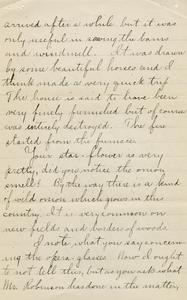 arrived after a while but it was
only useful in saving the barns
and windmill. It was drawn
by some beautiful horses and I
think made a very quick trip.
The house is said to have been
very finely furnished but of course
was entirely destroyed. The fire
started from the furnace.
Your star-flower is very
pretty, did you notice the onion
smell? By the way there is a kind
of wild onion which grows in this
country. It is very common on
new fields and borders of woods.
I note what you say concern-
ing the opera glasses. Now I ought
to not tell this, but as you ask what
Mr. Robinson has done in the matter,